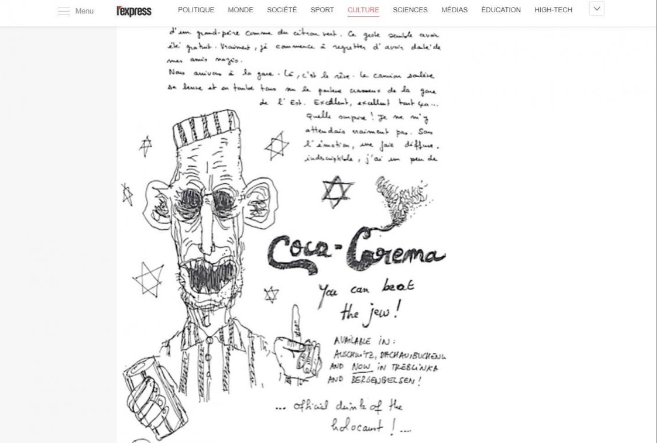 Menu
l'express
POLITIQUE MONDE SOCIÉTÉ SPORT CULTURE SCIENCES MÉDIAS ÉDUCATION HIGH-TECH
d'un grand-père comme du citron vert. Ce geste semble avoir
été gratuit. Vraiment, je commence à regretter d'avoir
mes amis nazis.
Nous arrivons à la gare. Là, c'est le rêve. Le camion soulève
sa benne et on tombe tous sur la de la gare
de l'Est. Excellent, excellent tout ça...
Quelle ! Je ne m'y
attendais vraiment pas. Sans
l'émotion, une joie diffuse,
indescriptible, j'ai un peu de
Coca-Crema
You can beat
the jew!
AVAILABLE IN:
AUSCHWITZ, DACHAU, BUCHENW
AND NOW IN TREBLINKA
AND BERGENBELSEN!
... official drink of the
holocaust!...